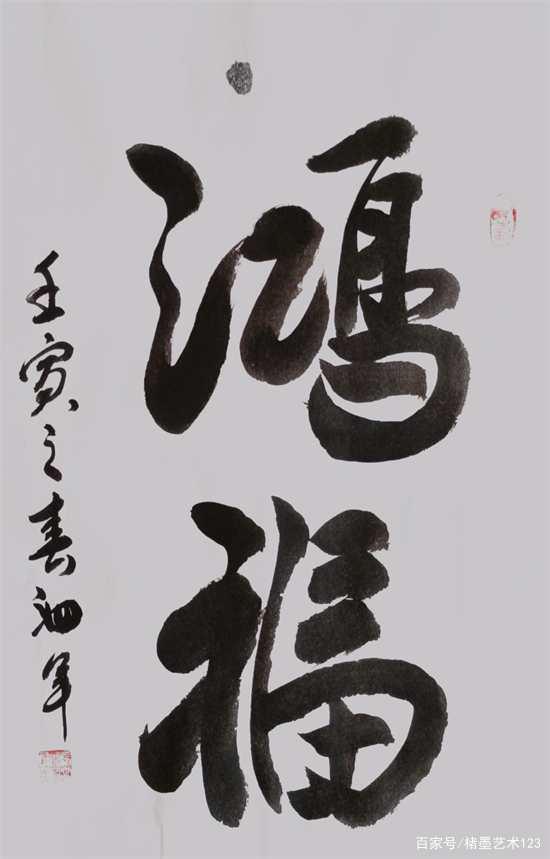 鸿福
壬寅之春
百家号/楮墨艺术123